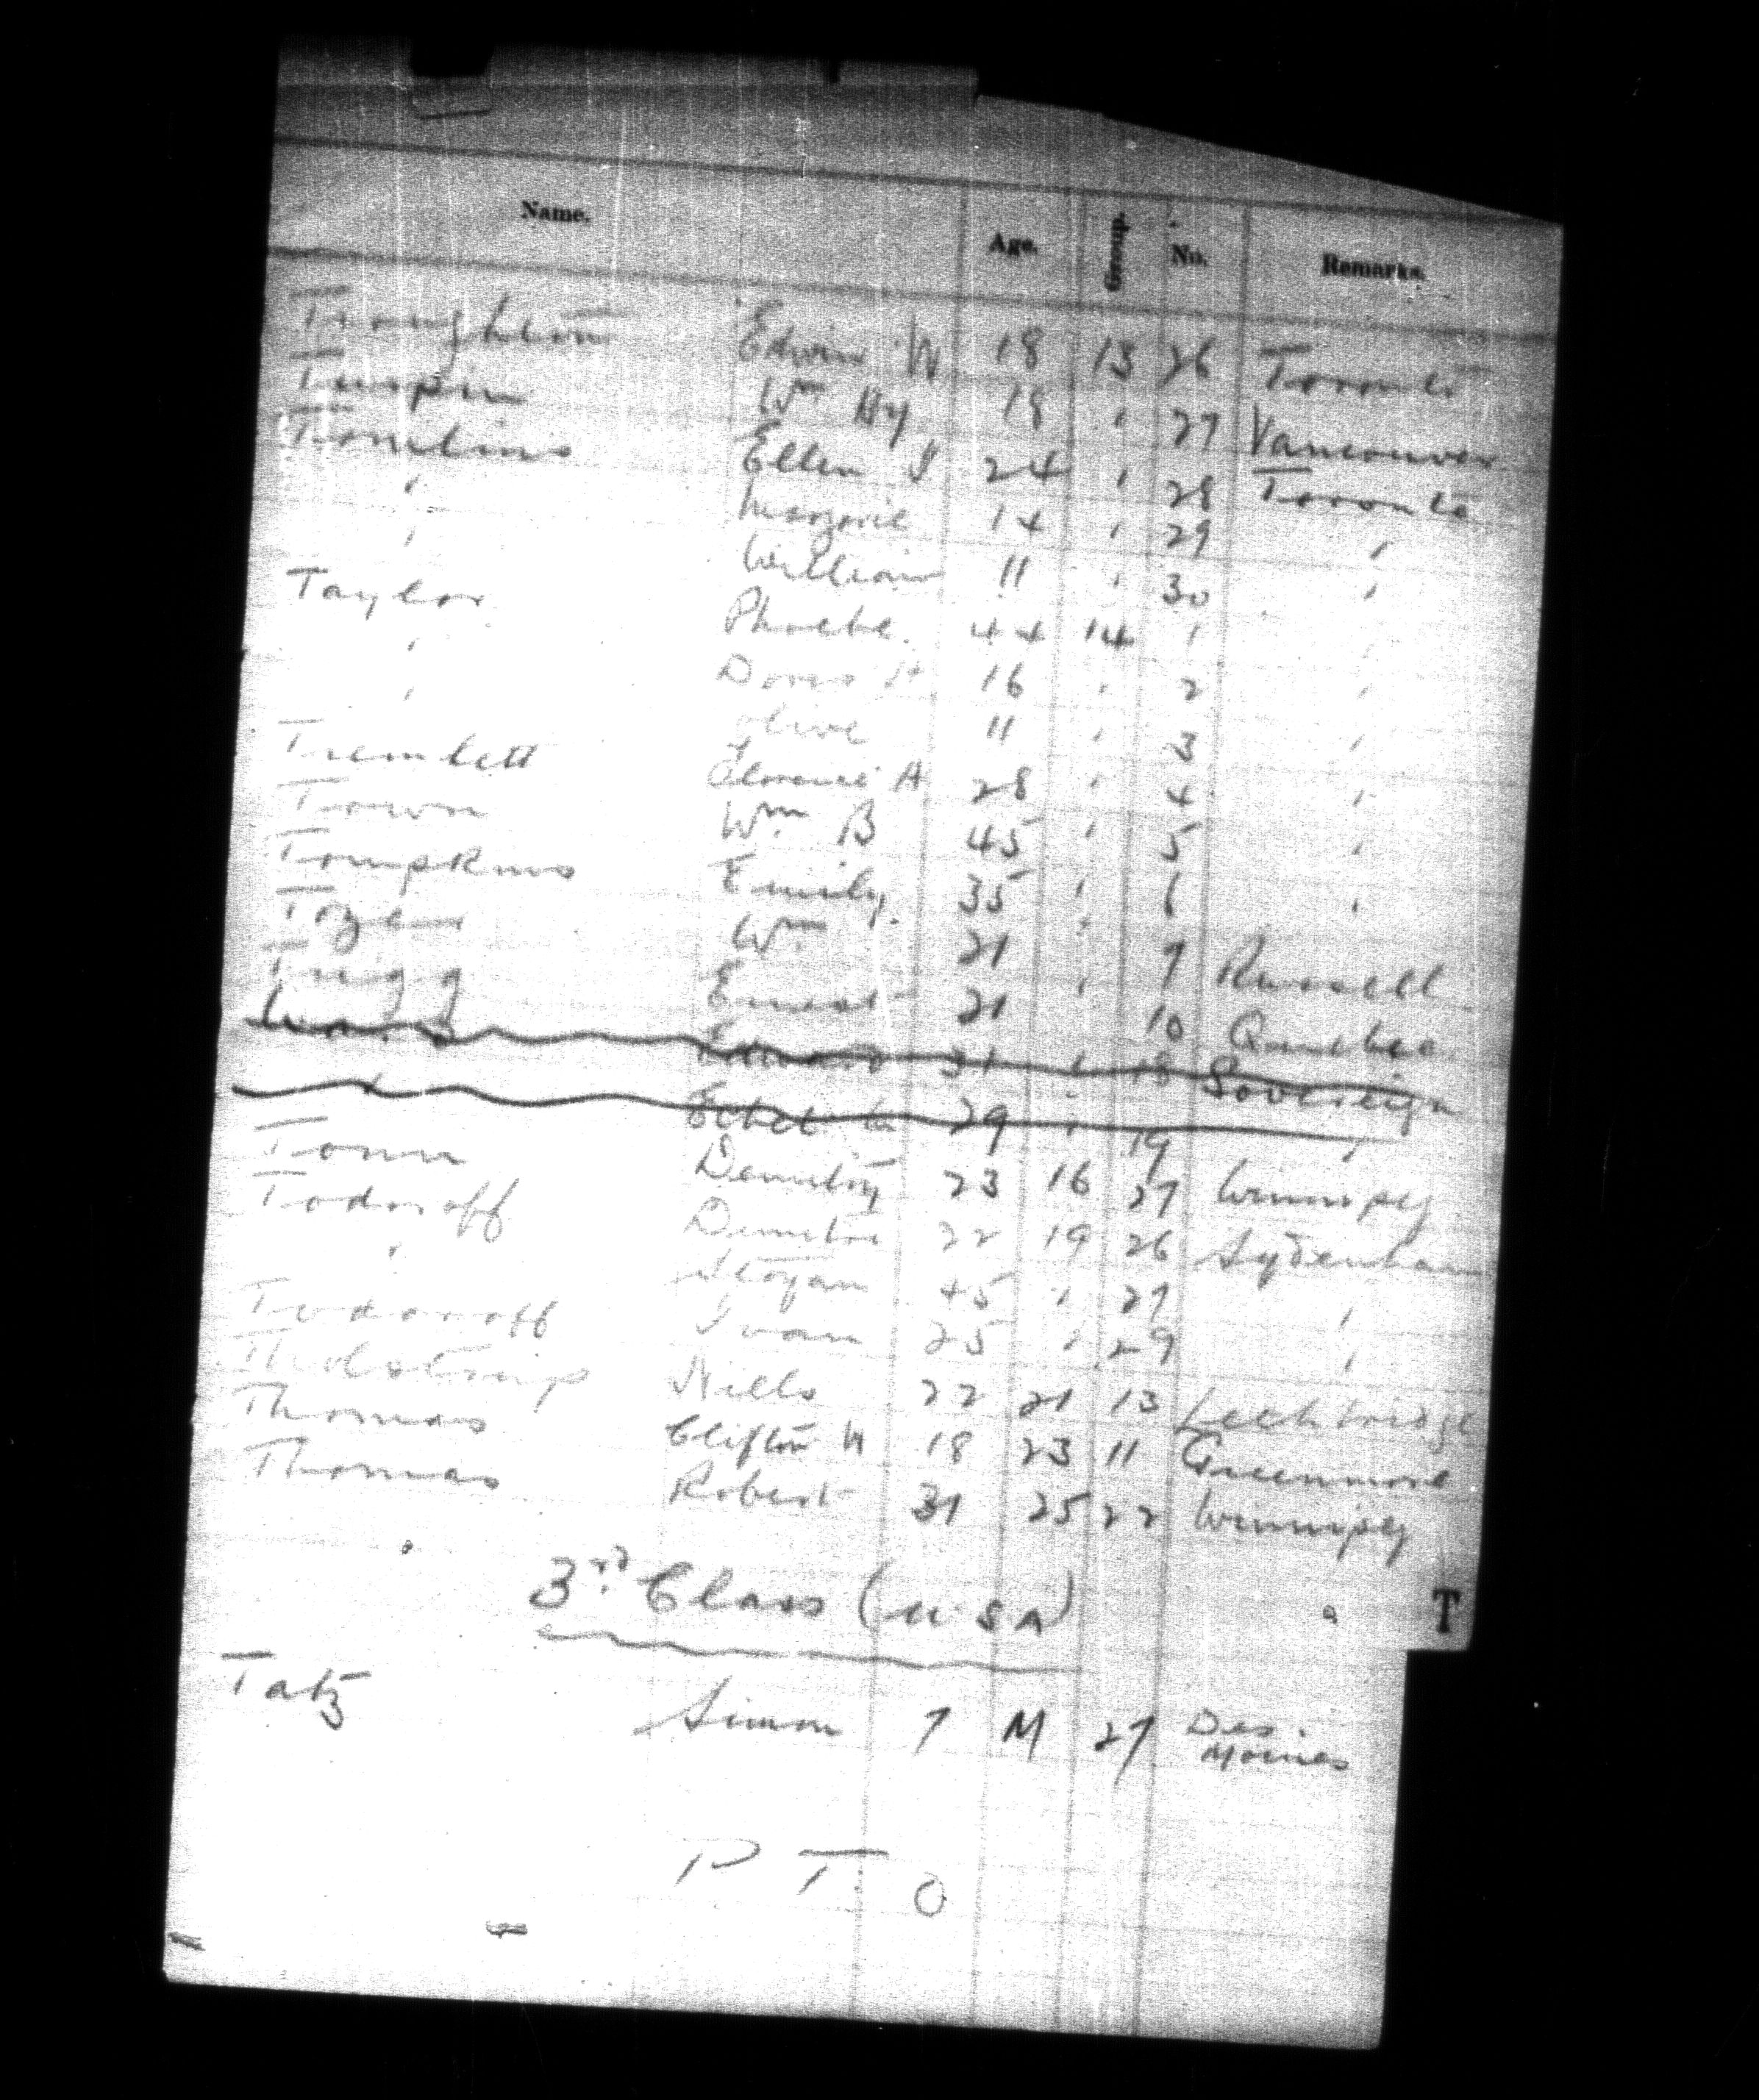 Name. Age. Group. No. Remarks.
Troughton Edwin W 18 13 26 Toronto
Turpin Wm Hy 18 " 27 Vancouver
Tomlins Ellen I 24 " 28 Toronto
" Marjorie 14 " 29 "
" William 11 " 30 "
Taylor Phoebe. 44 14 1 "
" Doris H 16 " 2 "
" Olive 11 " 3 "
Tremlett Florence A 28 " 4 "
Town Wm B 45 " 5 "
Tompkins Emily. 35 " 6 "
Tozer Wm 21 " 7 Russell
Trigg Ernest 21 " 10 Quebec
Edward 31 " 18 Sovereign
" Ethel 29 " 19 "
23 16 27 Winnipeg
Todoroff 22 19 26 Sydenham
" Stoyan 45 " 27 "
Todoroff Ivan 25 " 29 "
Tholstrup Nills 22 21 13 Lethbridge
Thomas Clifton H 18 23 11 Greenmore
Thomas Robert 31 25 22 Winnipeg
3rd Class (U S A)
T
Tatz Simon 7 M 27 Des. Moines
P T. O